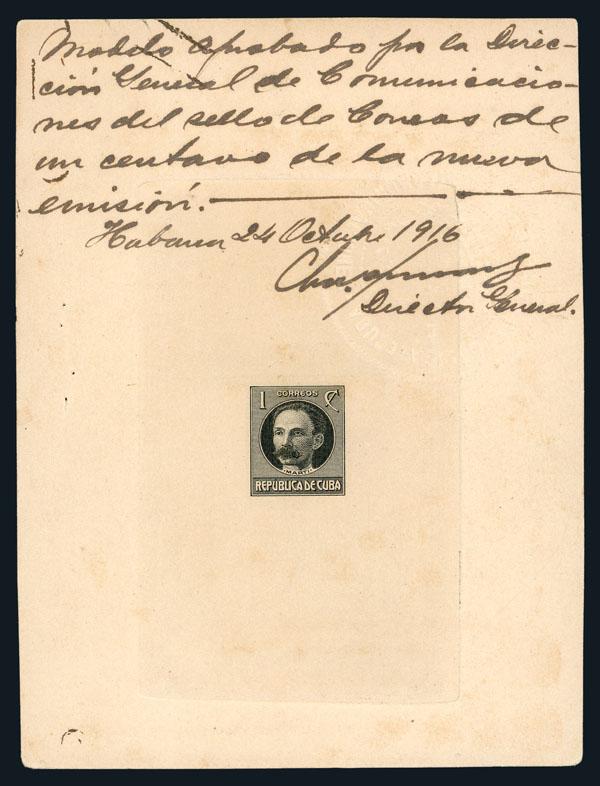 Modelo Aprobado por la Direc-
ción General de Comunicacio-
nes del sello de Correos de
un centavo de la nueva
emisión.
Habana 24 Octubre 1916
Director General.
1 CORREOS ¢
MARTI
REPÚBLICA DE CUBA